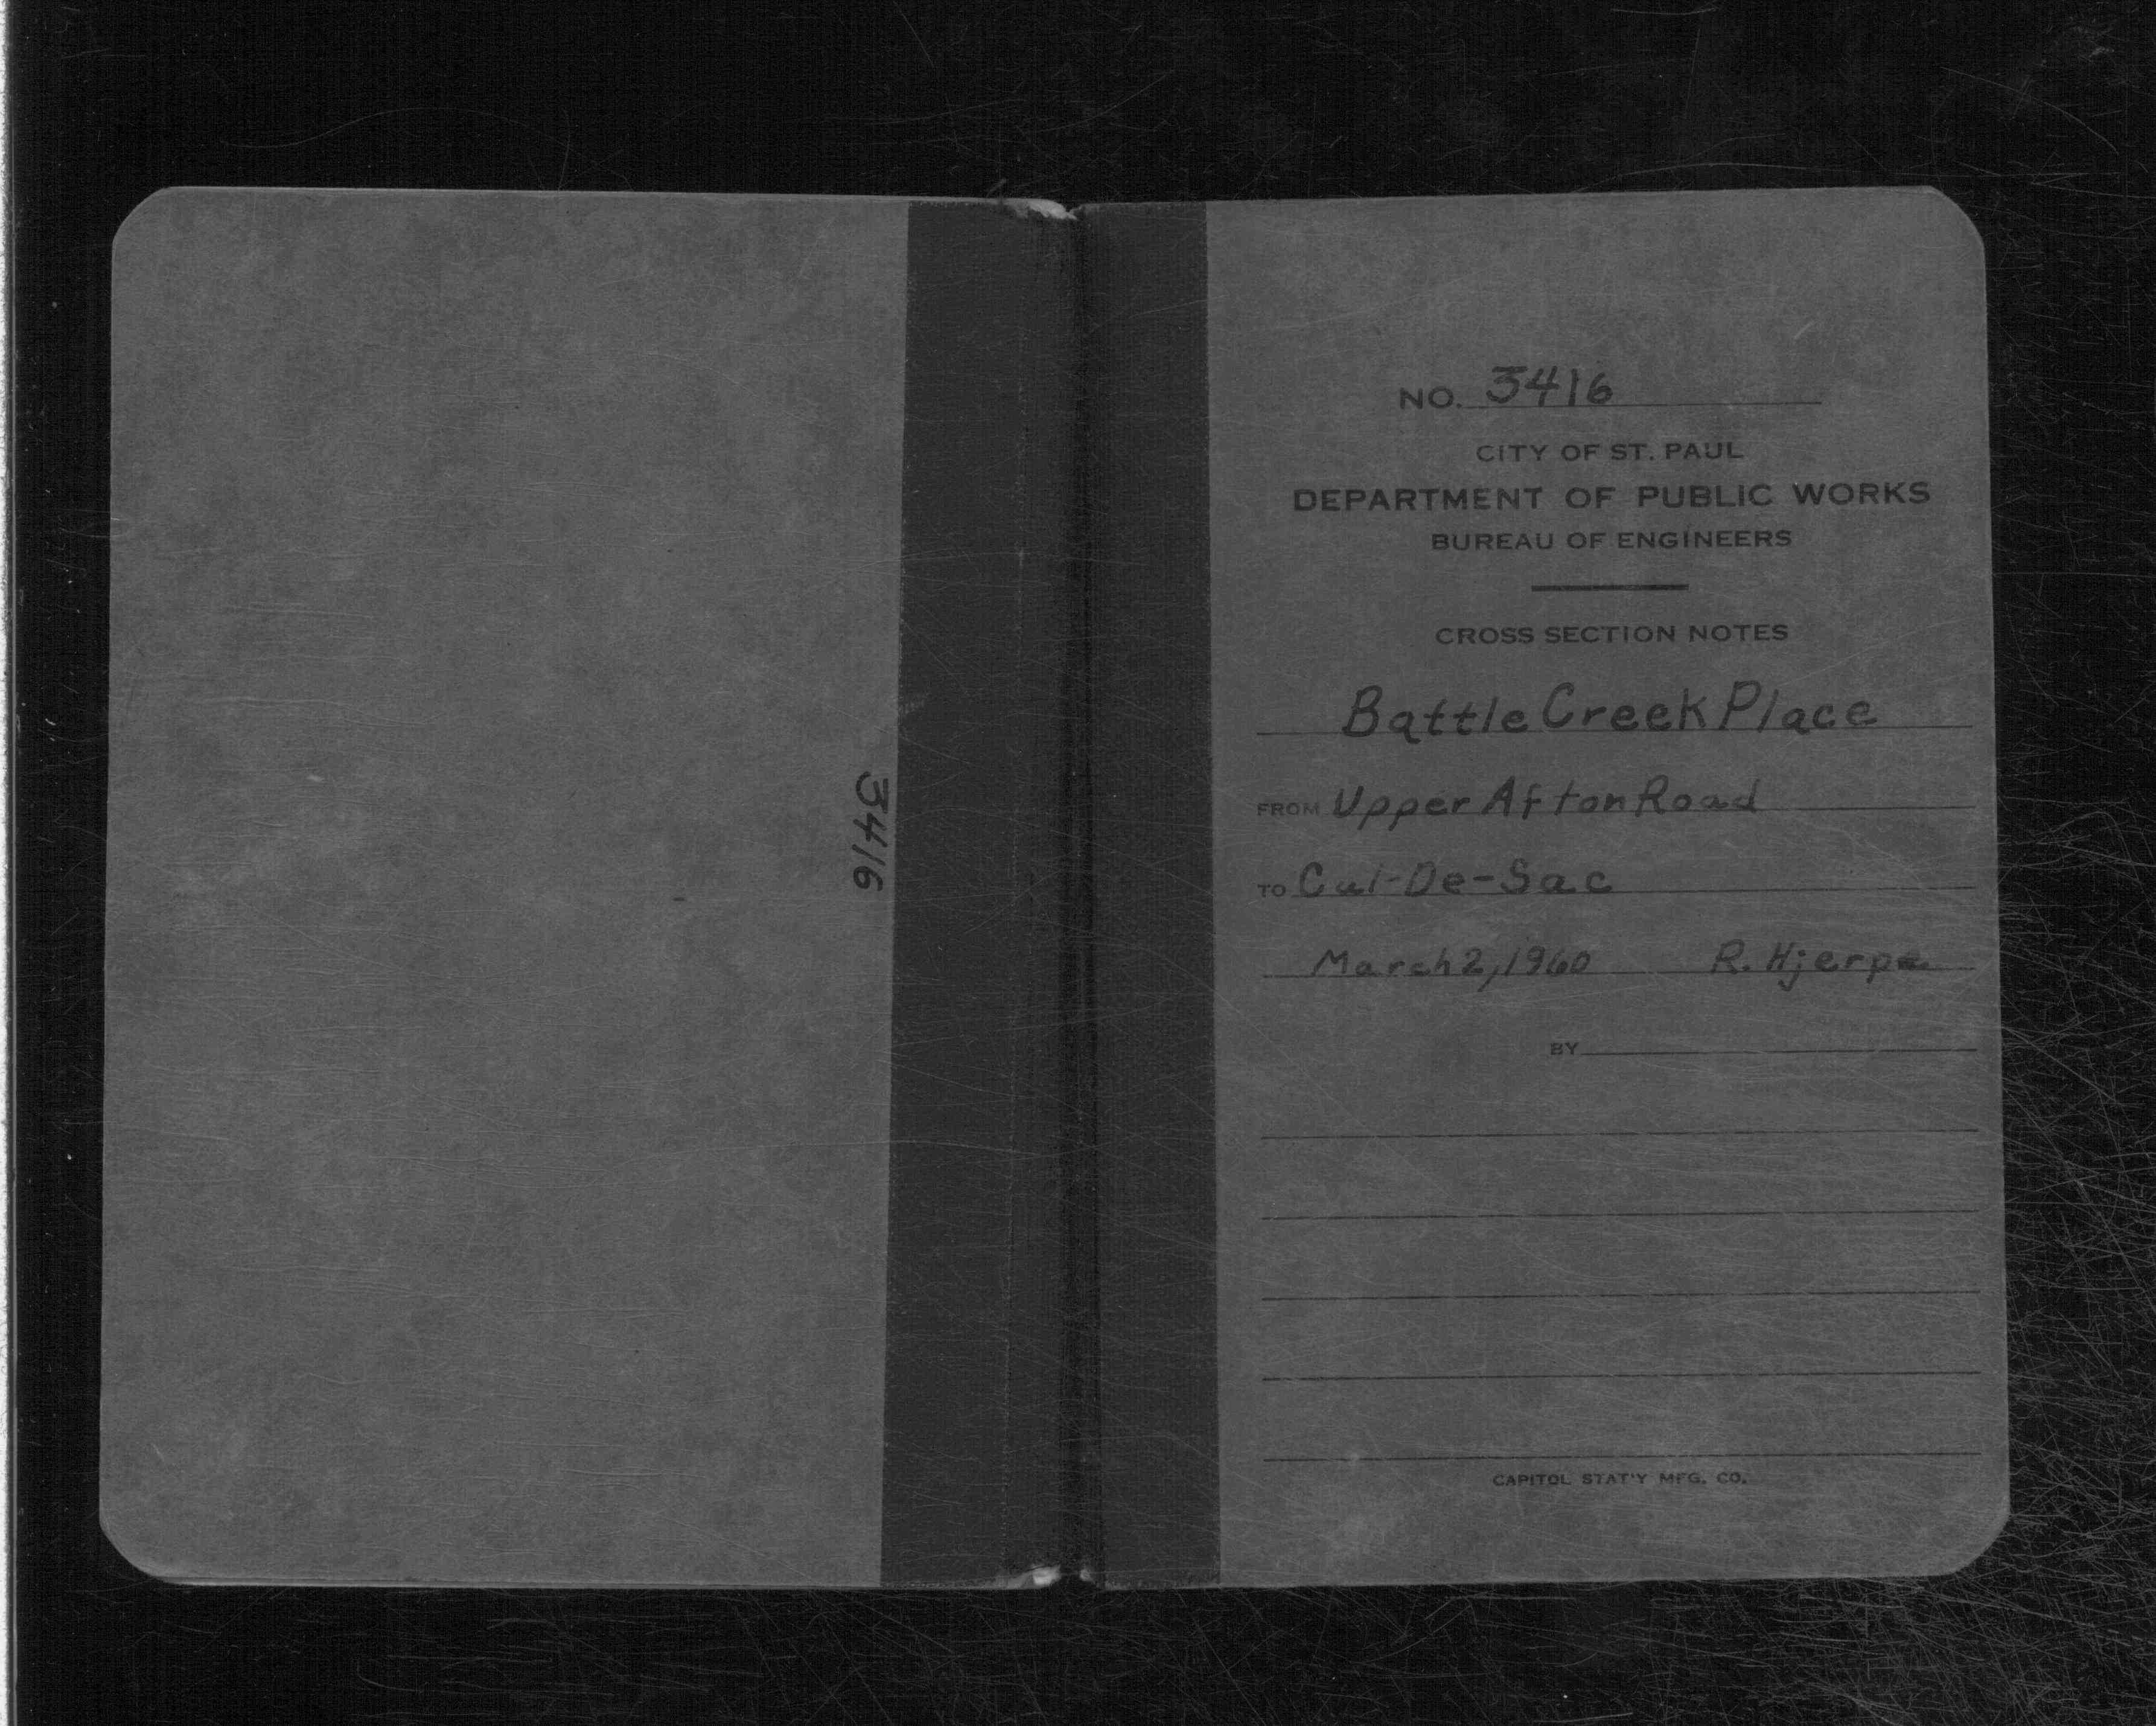 3416
NO. 3416
CITY OF ST. PAUL
DEPARTMENT OF PUBLIC WORKS
BUREAU OF ENGINEERS
CROSS SECTION NOTES
Battle Creek Place
FROM Upper Afton Road
TO Cul-De-Sac
March 2, 1960 R. Hjerpe
BY
CAPITOL STAT'Y MFG. CO.